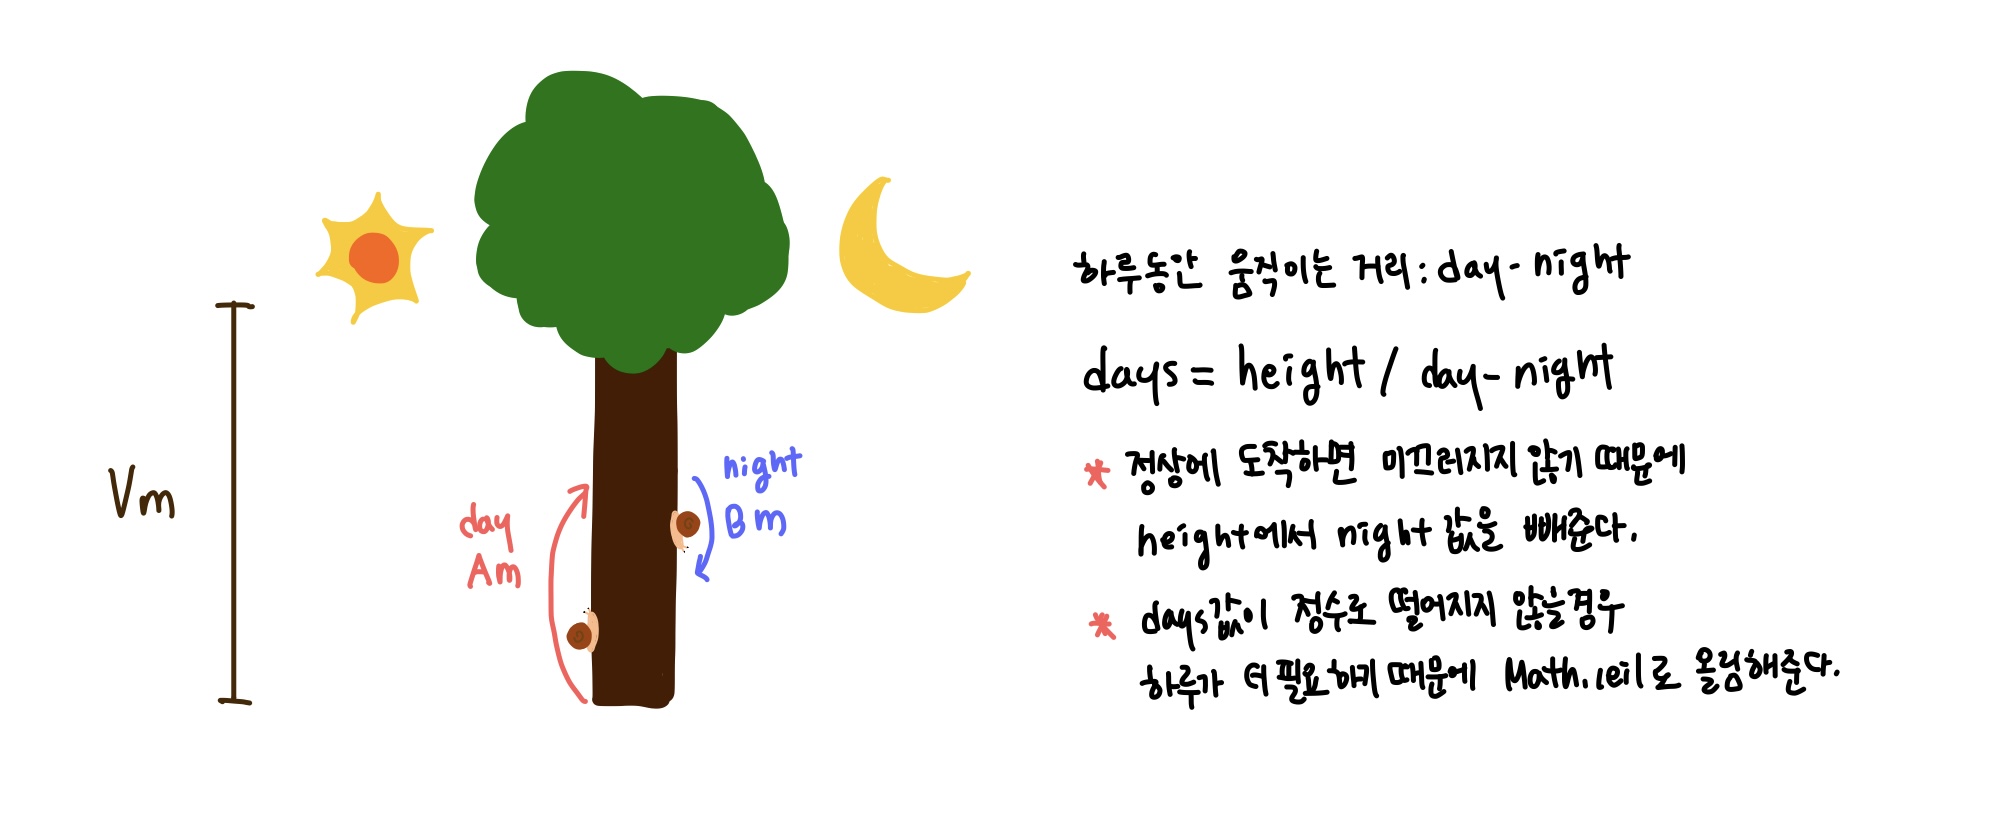 Vm
day
Am
night
Bm
하루동안 움직이는 거리 : day - night
days = height / day - night
* 정상에 도착하면 미끄러지지 않기 때문에
height에서 night 값을 빼준다.
* days값이 정수로 떨어지지 않을경우
하루가 더 필요하기 때문에 Math.ceil로 올림해준다.